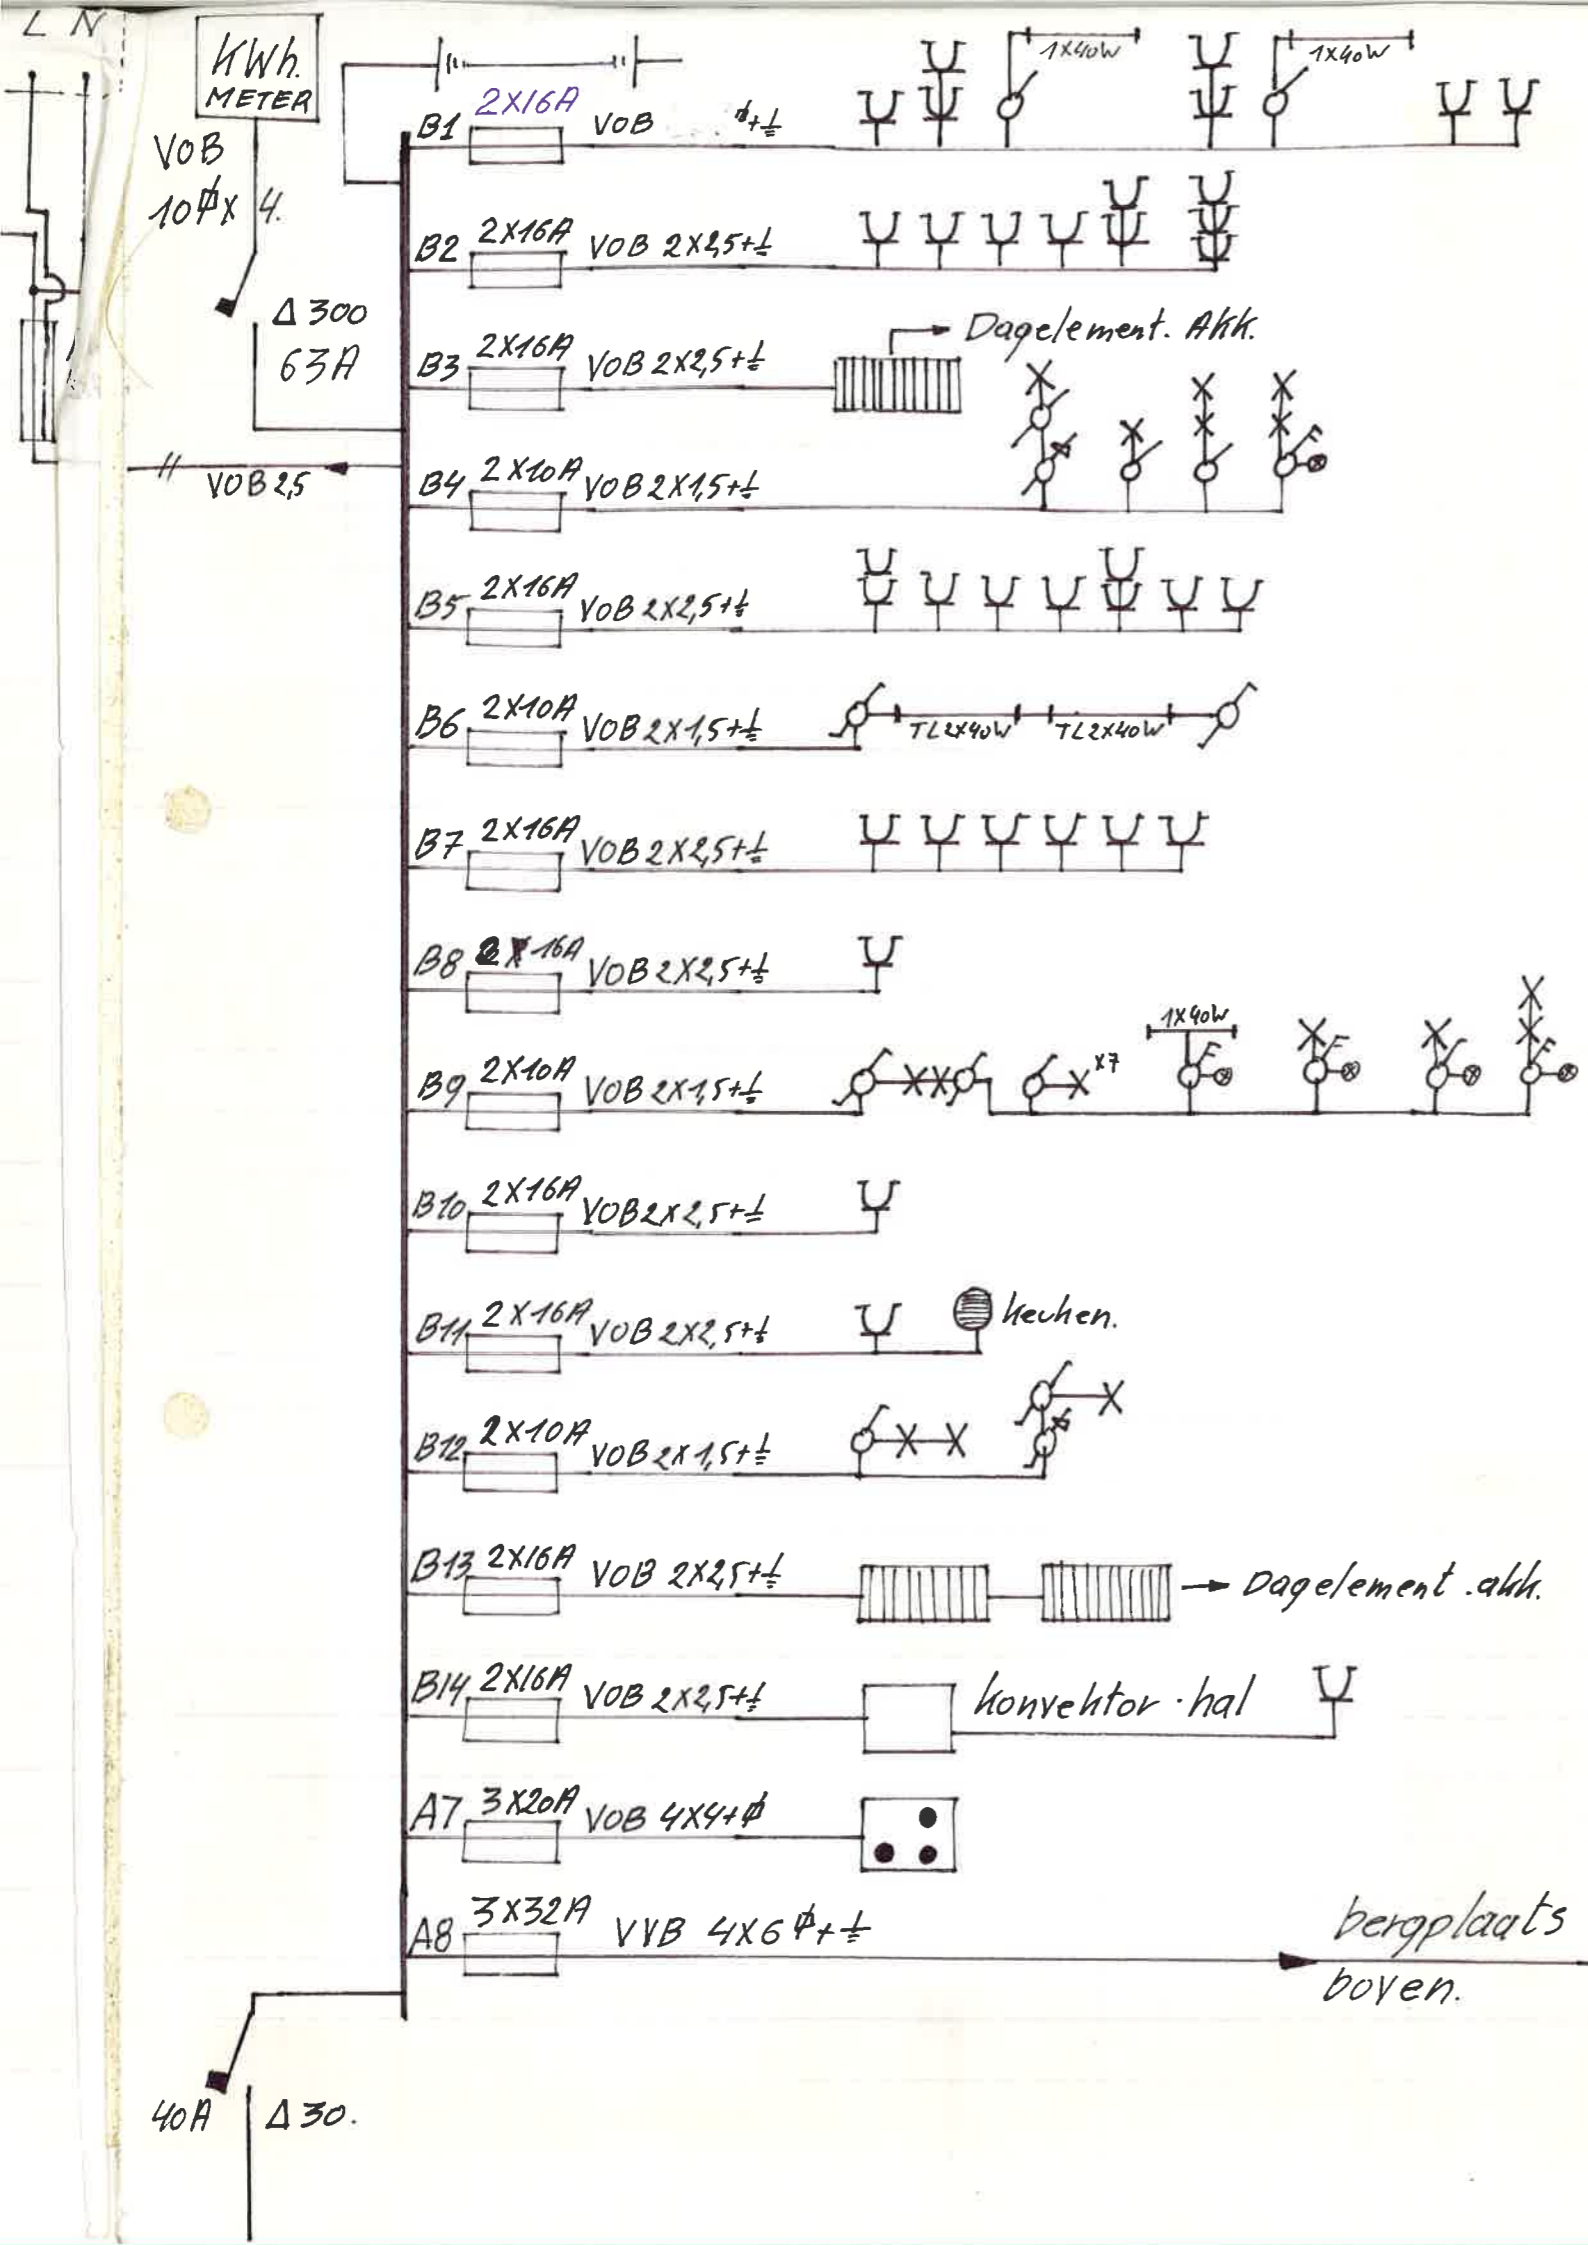 L N
KWh.
METER
VOB
10 ⏀ x 4.
Δ 300
63A
VOB 2,5
B1 2X16A VOB ⏀+⏚
1X40W
1X40W
B2 2X16A VOB 2X2,5+⏚
B3 2X16A VOB 2X2,5+⏚
Dagelement. Akk.
B4 2X10A VOB 2X1,5+⏚
B5 2X16A VOB 2X2,5+⏚
B6 2X10A VOB 2X1,5+⏚
TL2X40W TL2X40W
B7 2X16A VOB 2X2,5+⏚
B8 2X16A VOB 2X2,5+⏚
B9 2X10A VOB 2X1,5+⏚
x7
1X40W
B10 2X16A VOB 2X2,5+⏚
B11 2X16A VOB 2X2,5+⏚
keuken.
B12 2X10A VOB 2X1,5+⏚
B13 2X16A VOB 2X2,5+⏚
Dagelement.akk.
B14 2X16A VOB 2X2,5+⏚
konvektor.hal
A7 3X20A VOB 4X4+⏀
A8 3X32A VVB 4X6 ⏀+⏚
bergplaats
boven.
40A Δ 30.